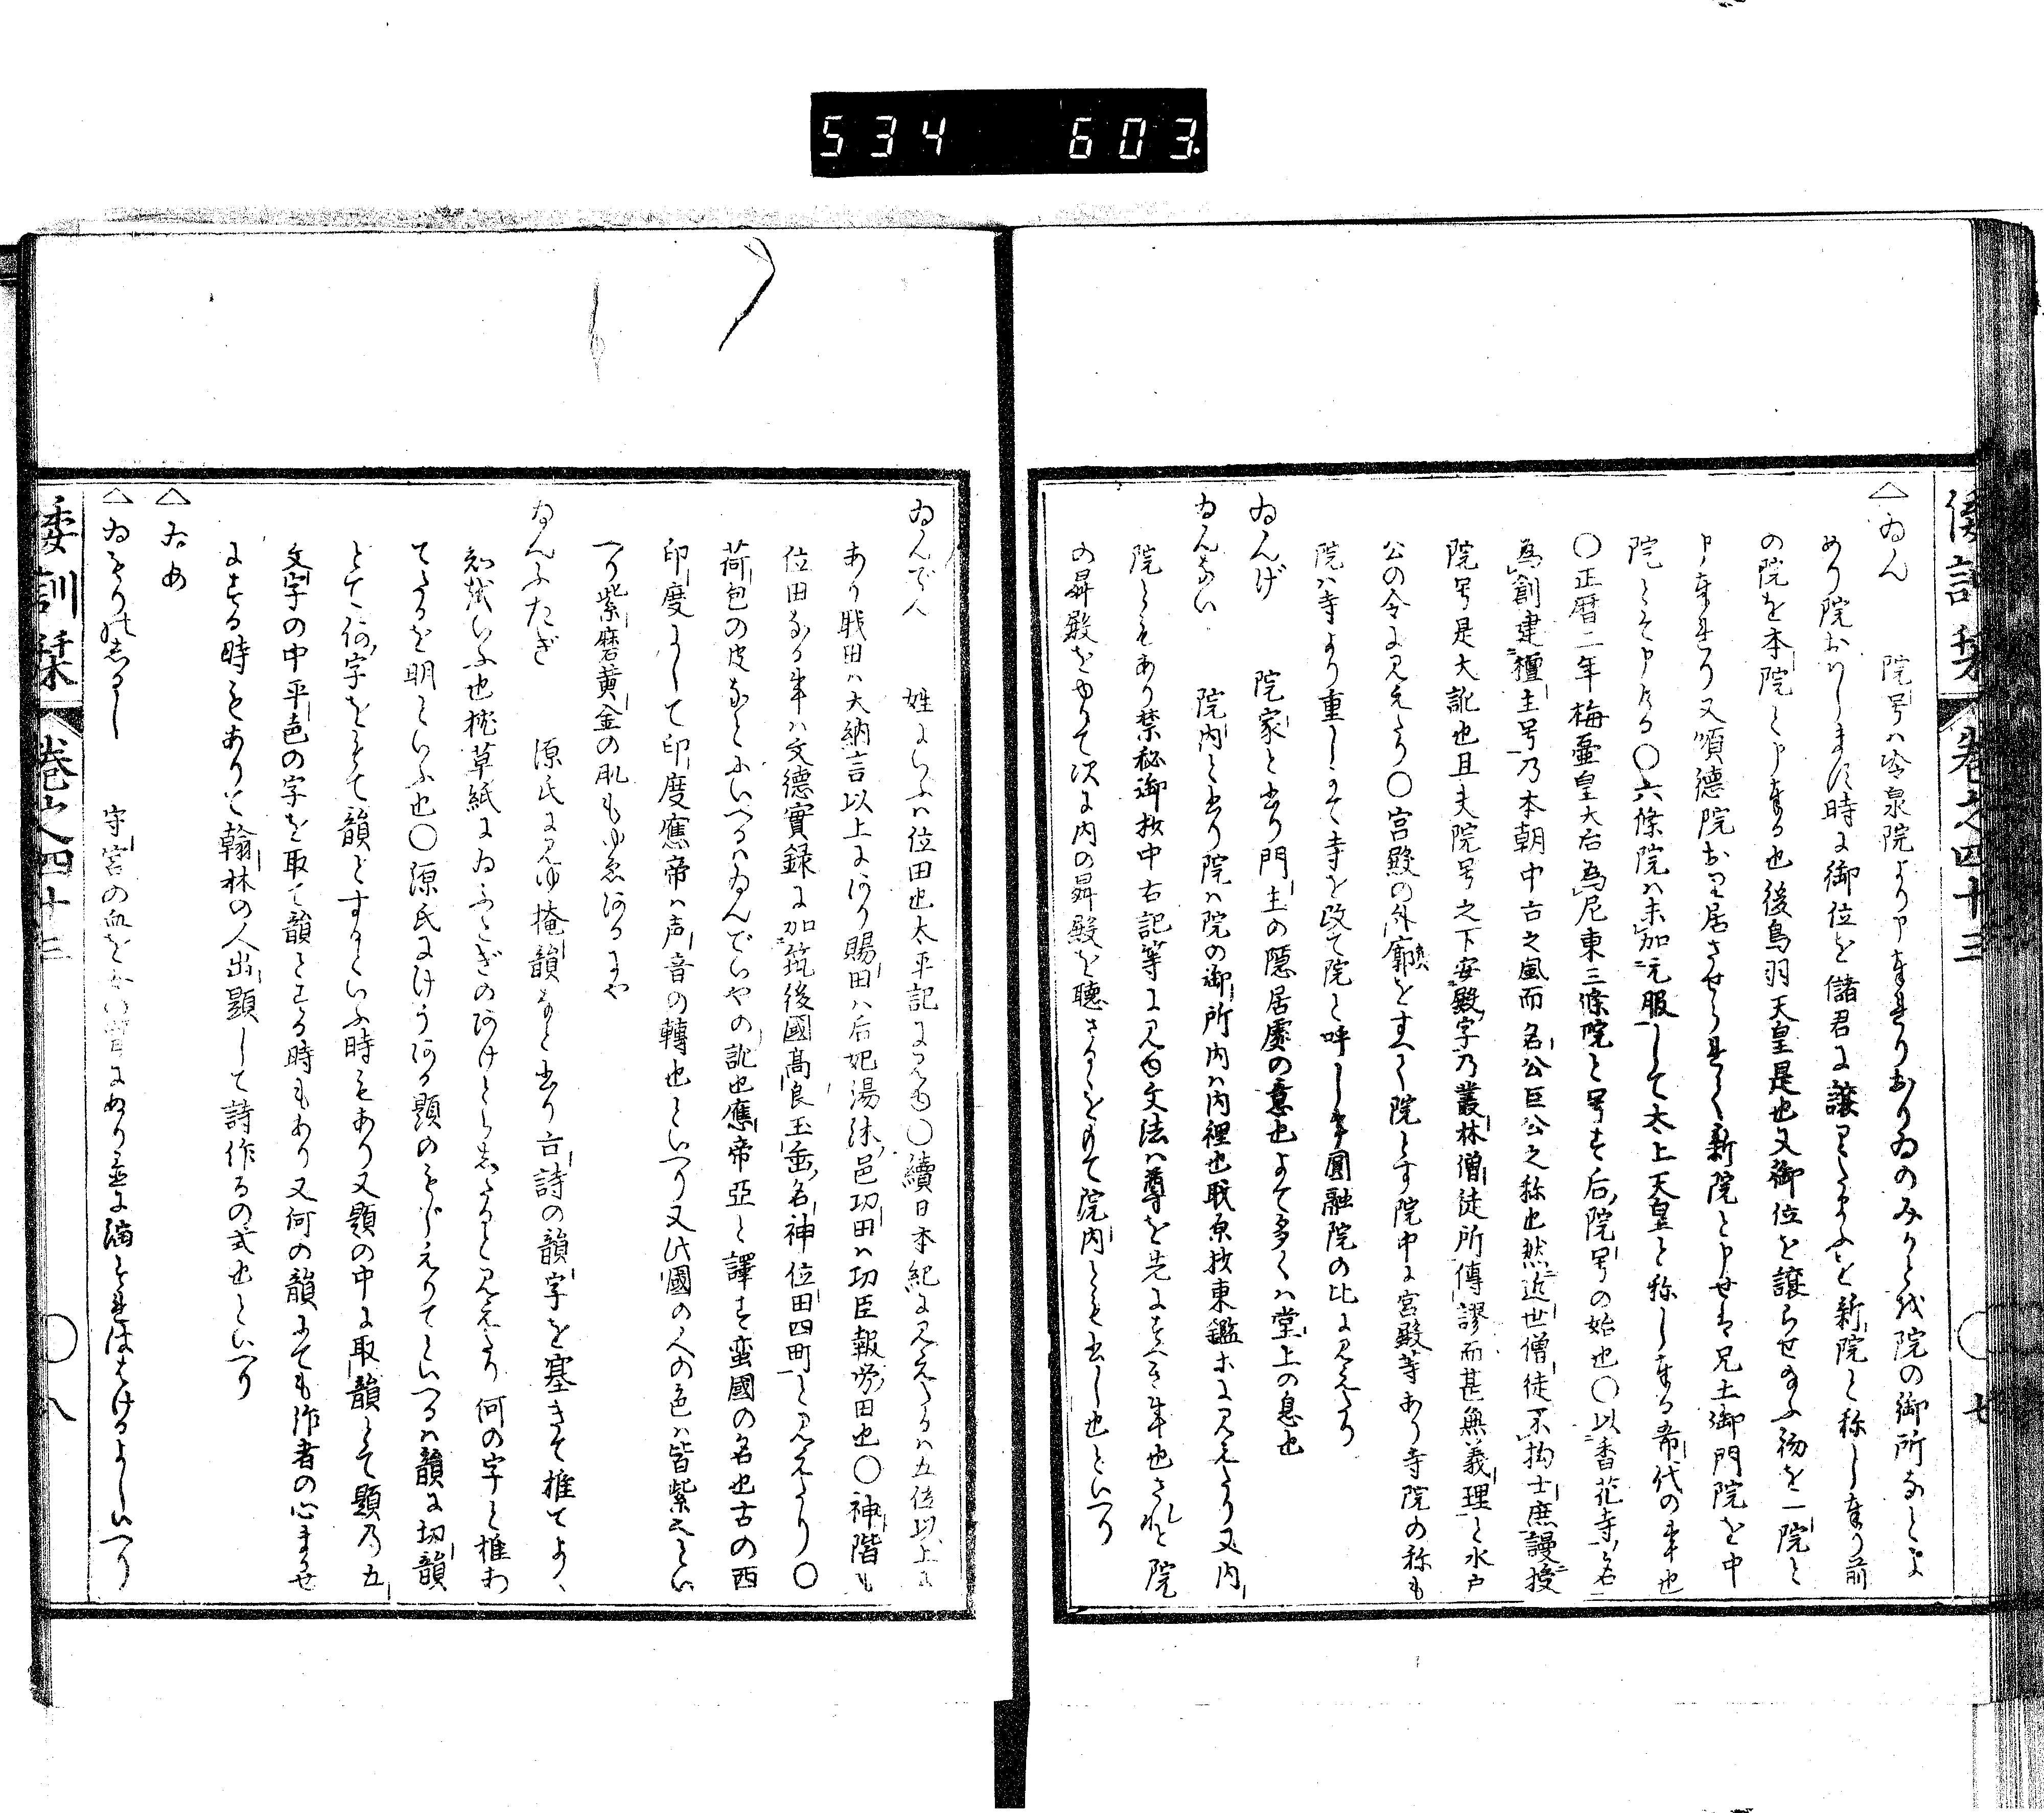 534 603
倭訓栞 巻之四十三 七
△ゐん 院号ハ冷泉院より申奉れりおりゐのみかと代院の御所なとよ
めり院おハします時に御位を儲君に譲りたまふを新院と称し奉り前
の院を本院と申奉る也後鳥羽天皇是也又御位を譲らせ給ふ初を一院と
申奉れり又順徳院おり居させられて新院と申せハ兄土御門院を中
院とそ申ける〇六條院ハ未加元服して太上天皇と称し奉る希代の事也
〇正暦二年梅壺皇太后為尼東三條院と号す后院号の始也〇以香花寺名
為創建檀主号乃本朝中古之風而名公巨公之称也然近世僧徒不拘士庶謾授
院号是大訛也且夫院号之下安殿字乃叢林僧徒所傳謬而甚無義理と水戸
公の令に見えたり〇宮殿の外廓をすへて院とす院中に宮殿等あり寺院の称も
院ハ寺より重しかて寺を改て院と呼し事圓融院の比に見えたり
ゐんげ 院家と書り門主の隠居處の意也よて多くハ堂上の息也
ゐんない 院内と書り院ハ院の御所内ハ内裡也職原抄東鑑ホに見えたり又内
院ともあり禁秘御抄中右記等に見ゆ文法ハ尊を先にすへき事也されと院
の昇殿をゆりて次に内の昇殿を聴さるゝをもて院内とも書し也といへり
ゐんでん 姓にいふハ位田也太平記に見ゆ〇續日本紀に見えたるハ五位以上に
あり職田ハ大納言以上にあり賜田ハ后妃湯沐邑功田ハ功臣報労田也〇神階も
位田ある事ハ文徳實録に加筑後國高良玉垂名神位田四町と見えたり〇
荷包の皮なとにいへるハゐんでいやの訛也應帝亞と譯す蛮國の名也古の西
印度にして印度應帝ハ声音の轉也といへり又此國の人の色ハ皆紫色とい
へり紫磨黄金の肌もゆゑあるにや
ゐんふたぎ 源氏に見ゆ掩韻なと書り古詩の韻字を塞きて推てよ、
知哉いふ也枕草紙にゐふたぎのあけとらしたると見えたり何の字と推あ
てたるを明といふ也〇源氏にけうある題のもじえりてといへるハ韻に切韻
とて何字をもて韻とすといふ時もあり又題の中に取韻とて題乃五
文字の中平色の字を取て韻とする時もあり又何の韻にても作者の心まかせ
にする時もありそ翰林の人出題して詩作るの式也といへり
△ゐゐ
△ゐもりのしるし 守宮の血をかい臂にぬり並に婚すれはきはけるよしいへり
倭訓栞 巻之四十三 八